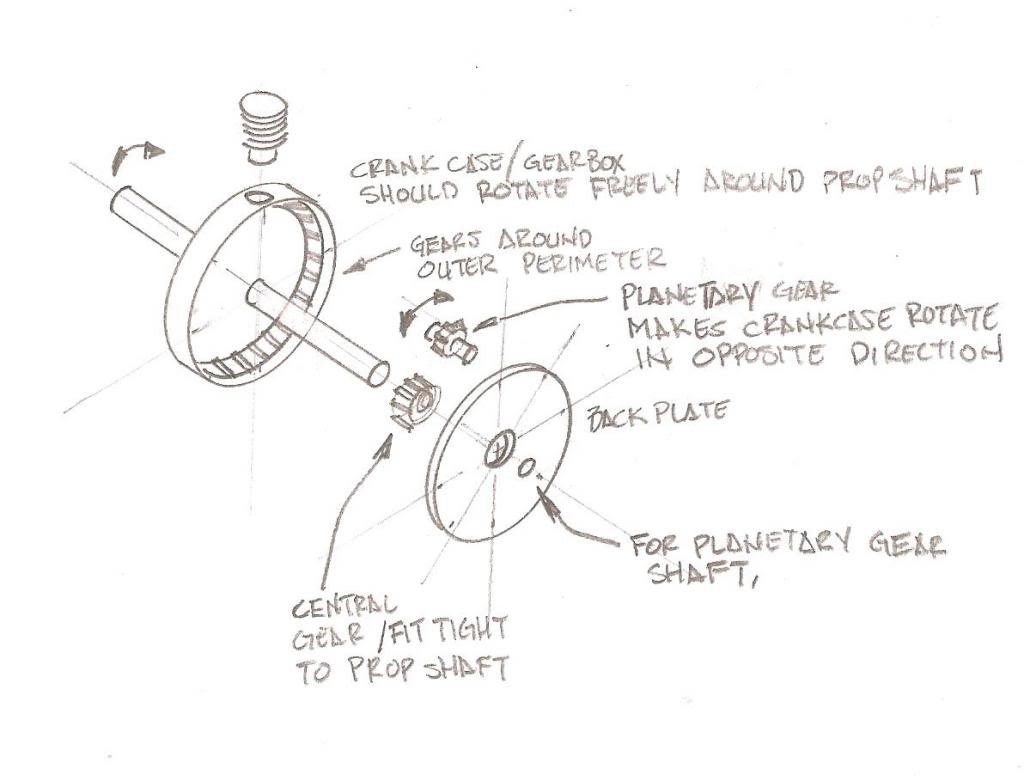 CRANK CASE/GEARBOX
SHOULD ROTATE FREELY AROUND PROPSHAFT
GEARS AROUND
OUTER PERIMETER
PLANETARY GEAR
MAKES CRANKCASE ROTATE
IN OPPOSITE DIRECTION
BACK PLATE
FOR PLANETARY GEAR
SHAFT,
CENTRAL
GEAR/FIT TIGHT
TO PROP SHAFT